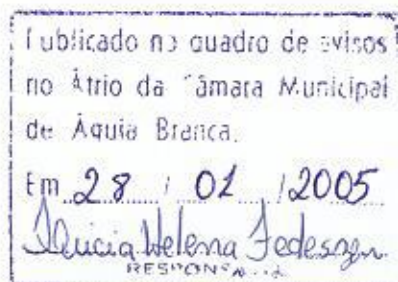 Publicado no quadro de avisos
no Átrio da Câmara Municipal
de Águia Branca.
Em 28 / 01 / 2005
Helena
RESPONSÁVEL